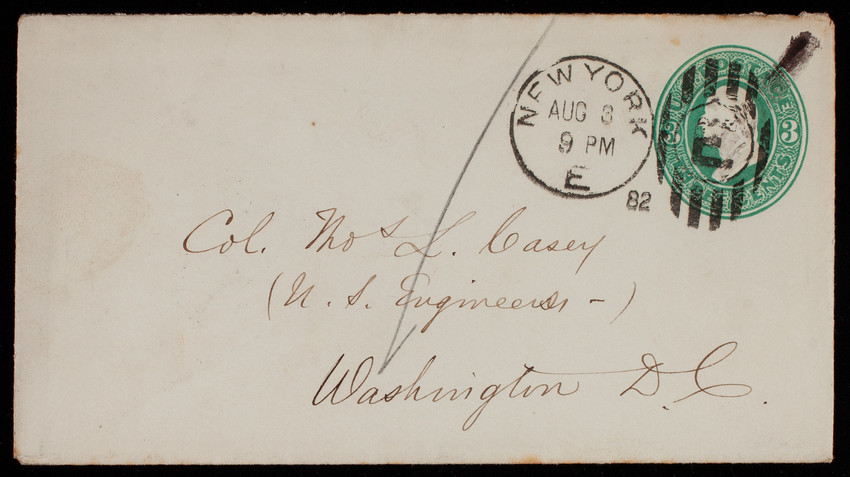 NEW YORK
AUG 3
9 PM
E
82
3 3
Col. Thos L. Casey
(U. S. Engineers -)
Washington D. C.